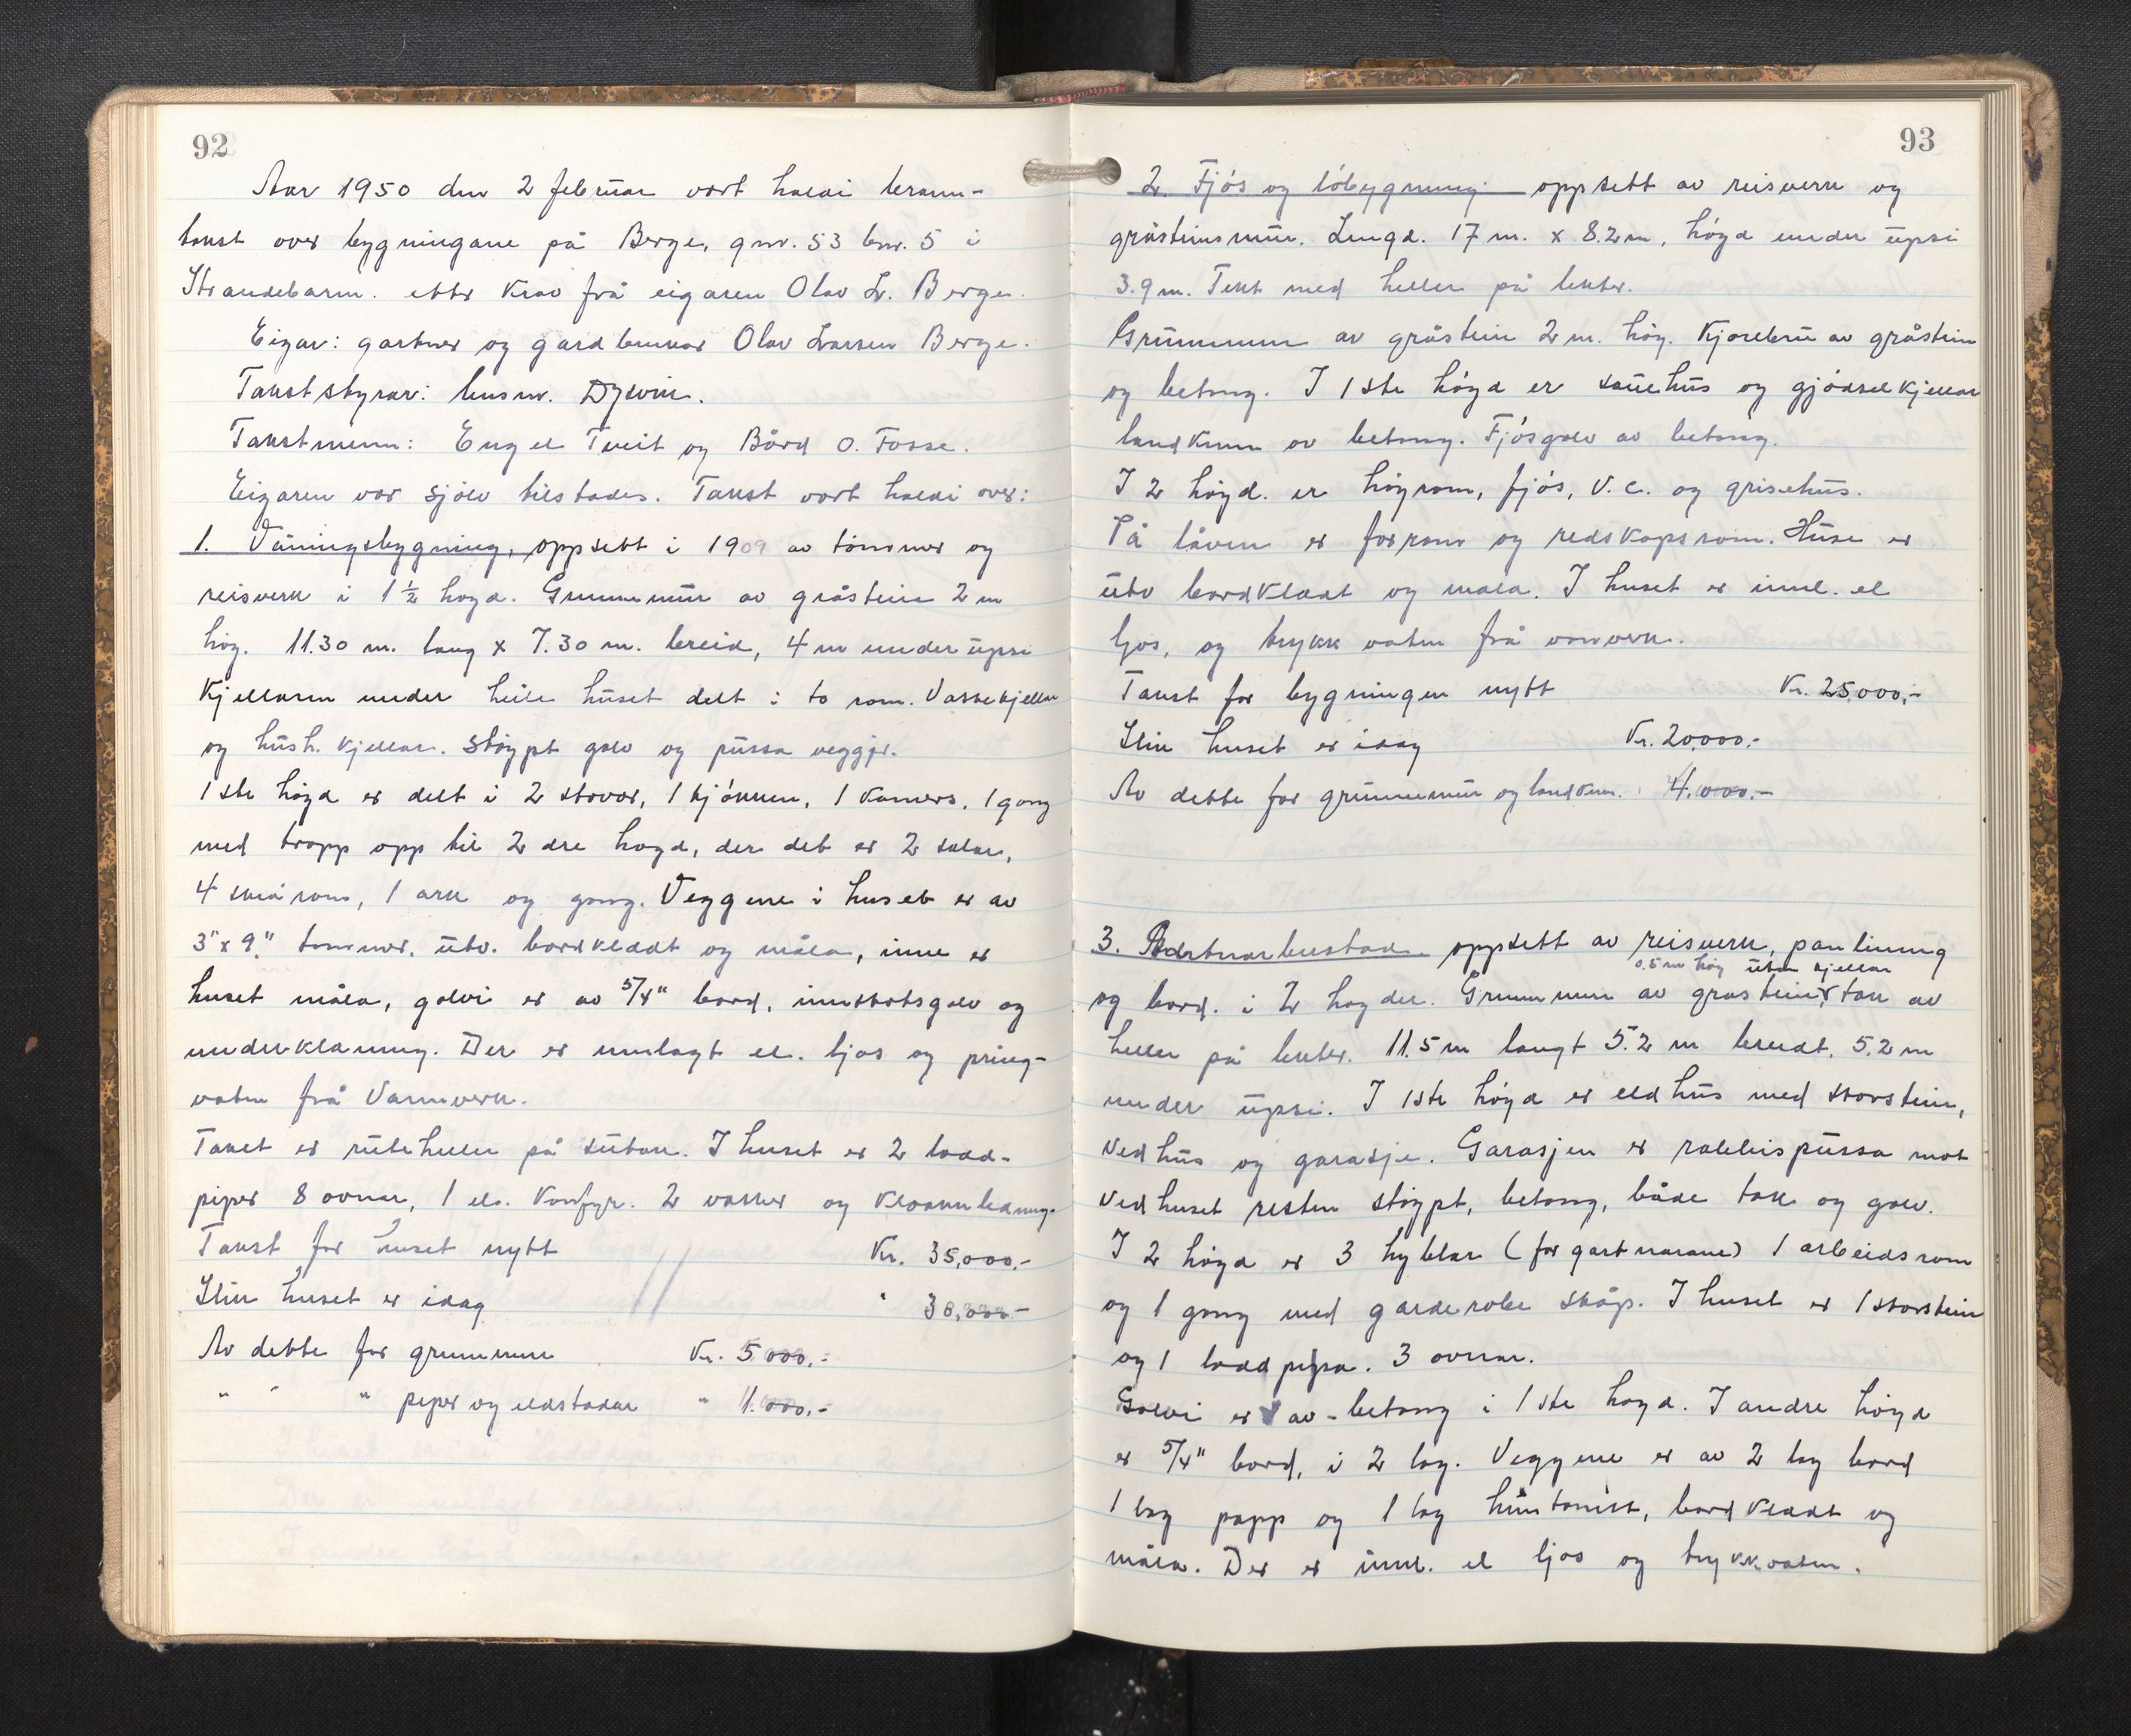 92
Aar 1950 den 2 februar vart haldi brann-
takst over bygningane på Berge, gnr. 53 bnr. 5 i
Strandebarm. etter krav frå eigaren Olav L. Berge.
Eigar: gartner og gardbrukar Olav Larsen Berge.
Takststyrar: lensm. Dysvik.
Takstmenn: Engel Tveit og Bård O. Fosse.
Eigaren var sjølv tilstades. Takst vart haldi over:
1. Våningsbygning, oppsett i 1909 av tømmer og
reisverk i 1½ høgd. Grunnmur av gråstein 2 m
høg. 11.30 m. lang x 7.30 m. breid, 4 m under upsi
Kjellaren under heile huset delt i to rom. Vaskekjellar
og hush. kjellar. Støypt golv og pussa veggjr.
1ste høgd er delt i 2 stover, 1 kjøkken, 1 kamers, 1 gang
med tropp opp til 2dre høgd, der det er 2 salar,
4 små rom, 1 ark og gang. Veggene i huset er av
3" x 9" tømmer. utv. bordkledt og måla, inne er
huset måla, golvi er av 5/4" bord, innskotsgolv og
underkledning. Der er innlagt el. ljos og spring-
vatn frå Vannverk.
Taket er ruteheller på sutak. I huset er 2 ladd-
piper 8 ovnar, 1 el. komfyr. 2 vasker og kloakkledning.
Takst for huset nytt Kr. 35,000.-
Slik huset er idag " 30,000.-
Av dette for grunnmur Kr. 5000.-
" " " piper og eldstadar " 1.000.-
93
2. Fjøs og løbygning. oppsett av reisverk og
gråsteinsmur. Lengd. 17 m. x 8.2 m, høgd under upsi
3.9 m. Tekt med heller på lekter.
Grunnmur av gråstein 2 m. høg. Kjørebru av gråstein
og betong. I 1ste høgd er sauehus og gjødselkjellar
landkum av betong. Fjøsgolv av betong.
I 2 høgd. er høyrom, fjøs, V.c. og grisehus.
På låven er forrom og redskapsrom. Huse er
utv bordkledt og måla. I huset er innl. el
ljos, og trykk vatn frå vannverk.
Takst for bygningen nytt Kr. 25,000,-
Slik huset er idag Kr. 20,000.-
Av dette for grunnmur og landkum. 4.000.-
3. Gartnarbustad oppsett av reisverk, panlining
0.5 m høg utan kjellar
og bord. i 2 høgder. Grunnmur av gråstein, tak av
heller på lekter. 11.5 m langt 5.2 m breidt. 5.2 m
under upsi. I 1ste høgd er eldhus med skorstein,
vedhus og garasje. Garasjen er rabbispussa mot
vedhuset resten støypt, betong, både tak og golv.
I 2 høgd er 3 hyblar (for gartnarane) 1 arbeidsrom
og 1 gang med garderobe skåp. I huset er 1 skorstein
og 1 laddpipa. 3 ovnar.
Golvi er av betong i 1ste høgd. I andre høgd
er 5/4" bord, i 2 lag. Veggene er av 2 lag bord
1 lag papp og 1 lag huntonitt, bordkledt og
måla. Der er innl. el ljos og trykkvatn.